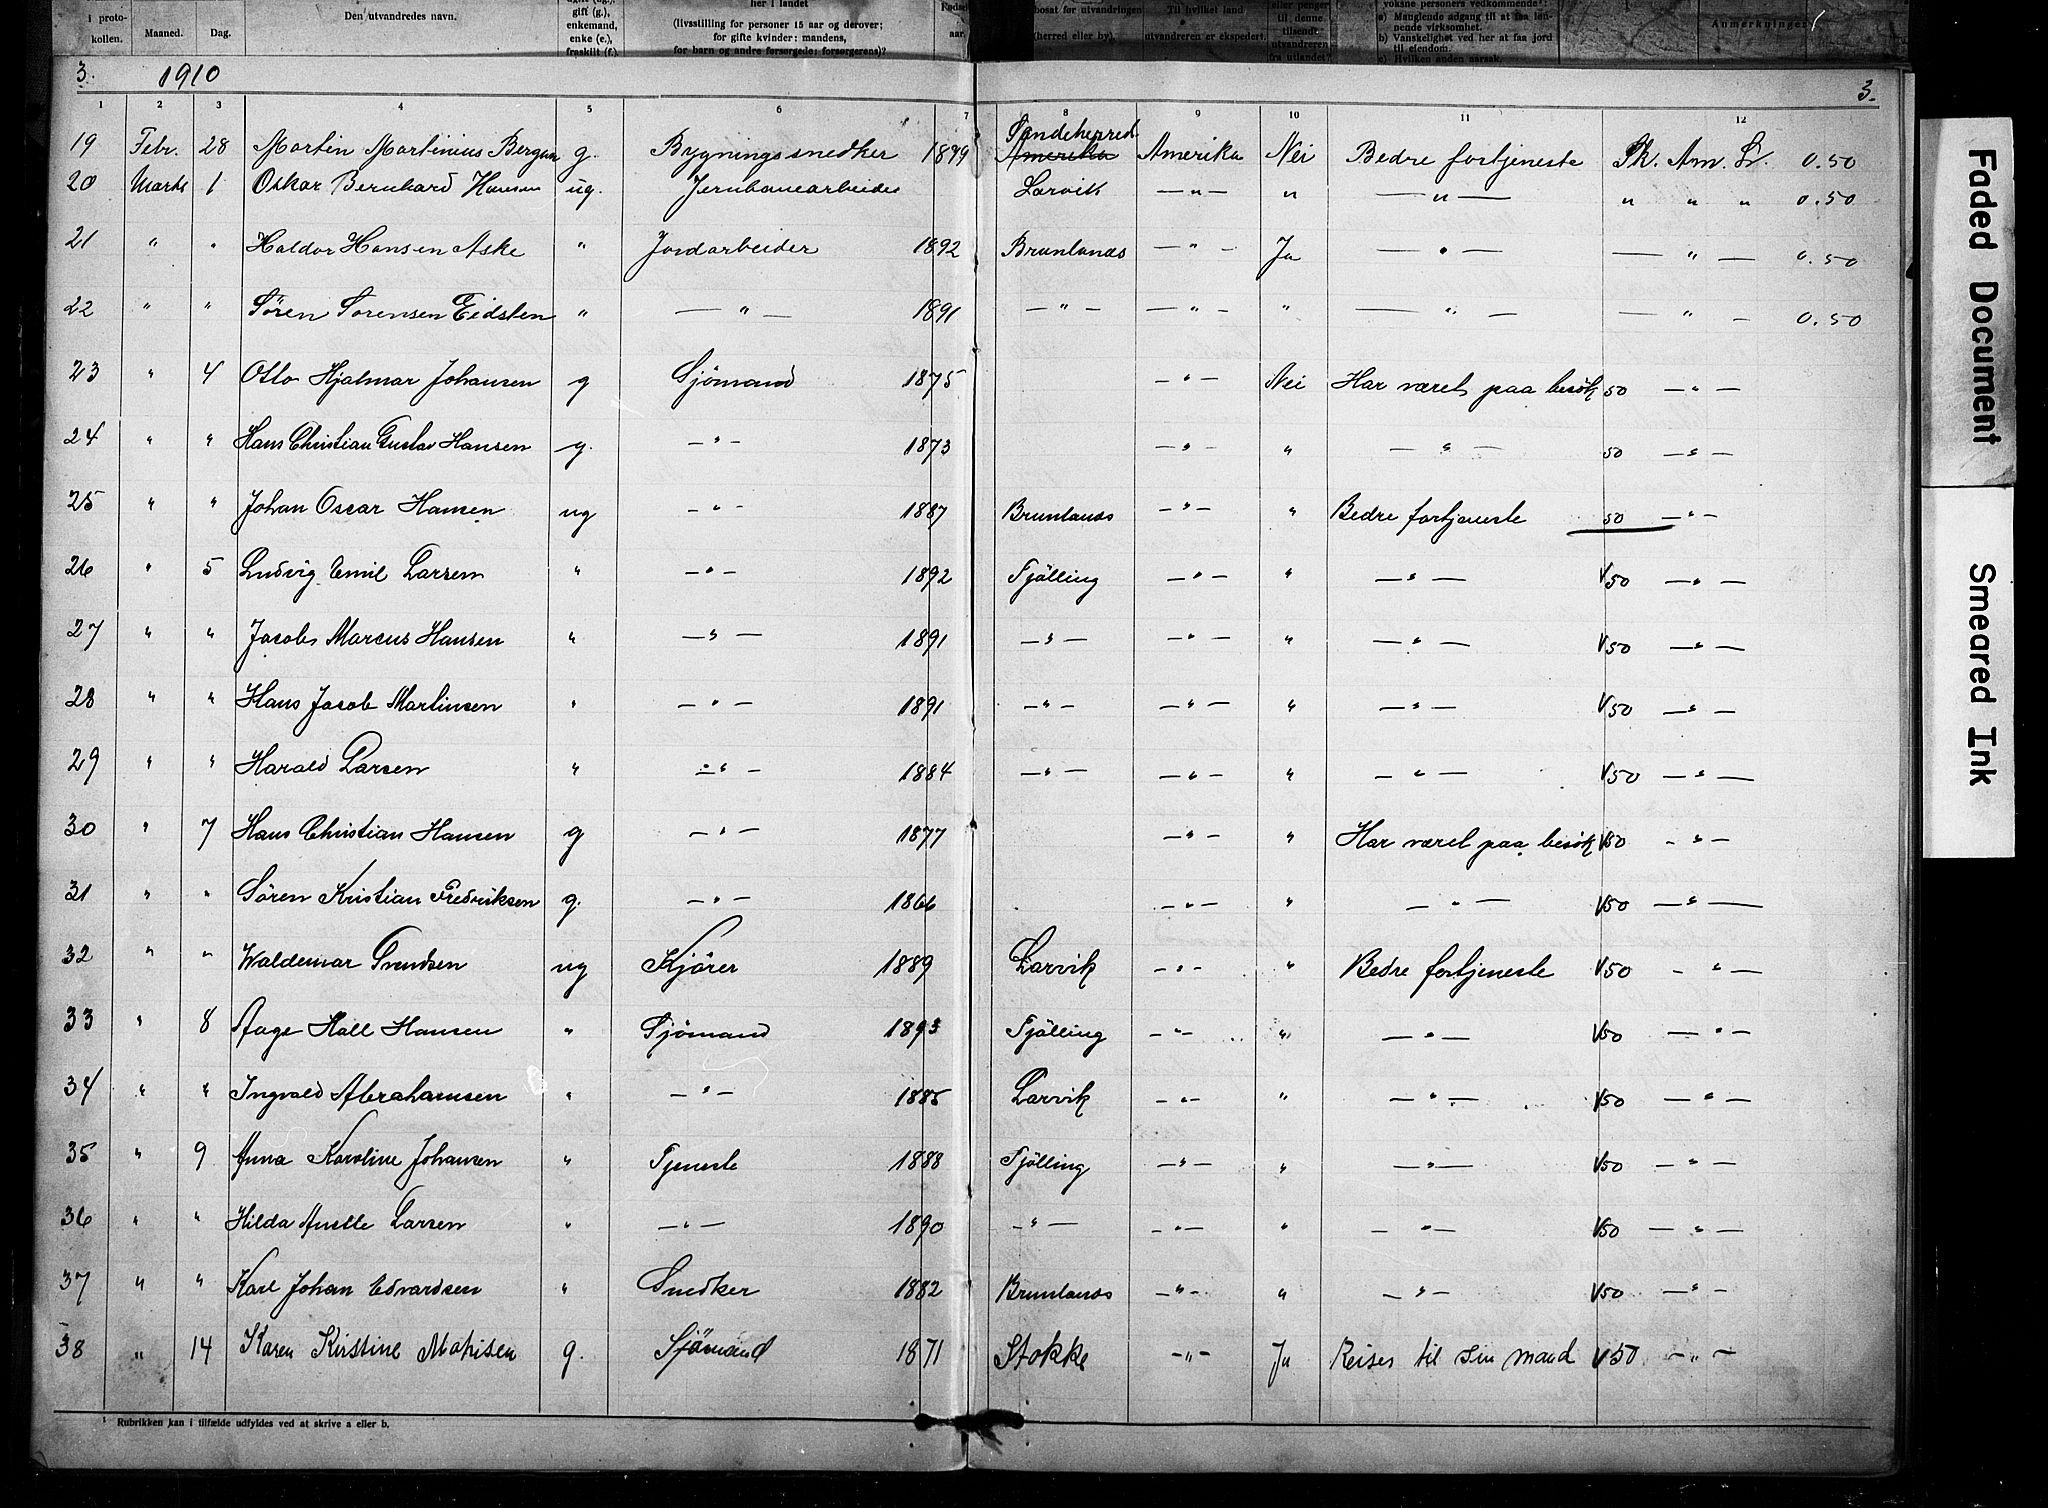 i proto-
kollen.
Maaned.
Dag.
Den utvandredes navn.
gift (g.),
enkemand,
enke (e.),
fraskilt (f.)
her i landet
(livsstilling for personer 15 aar og derover;
for gifte kvinder: mandens,
for barn og andre forsørgede; forsørgerens)?
aar.
bosat før utvandringen
(herred eller by),
Til hvilket land
utvandreren er ekspedert.
eller penger
til denne
tilsendt
utvandreren
fra utlandet?
voksne personers vedkommende:
a) Manglende adgang til at faa løn-
nende virksomhet.
b) Vanskelighet ved her at faa jord
til eiendom.
c) Hvilken anden aarsak.
Anmerkninger.
3. 1910 3.
1 2 3 4 5 6 7 8 9 10 11 12
19 Febr. 28 Martin Martinius Bergan g. Bygningssnedker 1879 Sandeherred Amerika Amerika Nei Bedre fortjeneste Sk. Am. L. 0.50
20 Marts 1 Oskar Bernhard Hansen ug. Jernbanearbeider Larvik — " — " — " — " " " 0.50
21 " " Haldor Hansen Aske " Jordarbeider 1892 Brunlanæs — " — Ja — " — — " — 0.50
22 " " Sören Sörensen Eidsten " — " — 1891 — " — — " — " — " — — " — 0.50
23 " 4 Otto Hjalmar Johansen g Sjömand 1875 — " — Nei Har været paa besök 50 — " —
24 " " Hans Christian Gustav Hansen g. — " — 1873 — " — " — " — 50 — " —
25 " " Johan Oscar Hansen ug — " — 1887 Brunlanæs — " — " Bedre fortjeneste 50 — " —
26 " 5 Ludvig Emil Larsen " — " — 1892 Tjölling — " — " — " — 50 — " —
27 " " Jacob Marcus Hansen " — " — 1891 — " — — " — " — " — 50 — " —
28 " " Hans Jacob Martinsen " — " — 1891 — " — — " — " — " — 50 — " —
29 " " Harald Larsen " — " — 1884 — " — — " — " — " — 50 — " —
30 " 7 Hans Christian Hansen g — " — 1877 — " — " Har været paa besök 50 — " —
31 " " Sören Kristian Fredriksen g. — " — 1866 — " — " — " — 50 — " —
32 " " Waldemar Svendsen ug Kjörer 1889 Larvik — " — " Bedre fortjeneste 50 — " —
33 " 8 Aage Hall Hansen " Sjömand 1893 Tjölling — " — " — " — 50 — " —
34 " " Ingvald Abrahamsen " — " — 1885 Larvik — " — " — " — 50 — " —
35 " 9 Anna Karoline Johansen " Tjeneste 1888 Tjölling — " — " — " — 50 — " —
36 " " Hilda Anette Larsen " — " — 1890 — " — — " — " — " — 50 — " —
37 " " Karl Johan Edvardsen " Snedker 1882 Brunlanæs — " — " — " — 50 — " —
38 " 14 Karen Kirstine Mathisen g. Sjömand 1871 Stokke — " — Ja Reiser til sin mand 50 — " —
¹ Rubrikken kan i tilfælde udfyldes ved at skrive a eller b.
Faded Document
Smeared Ink